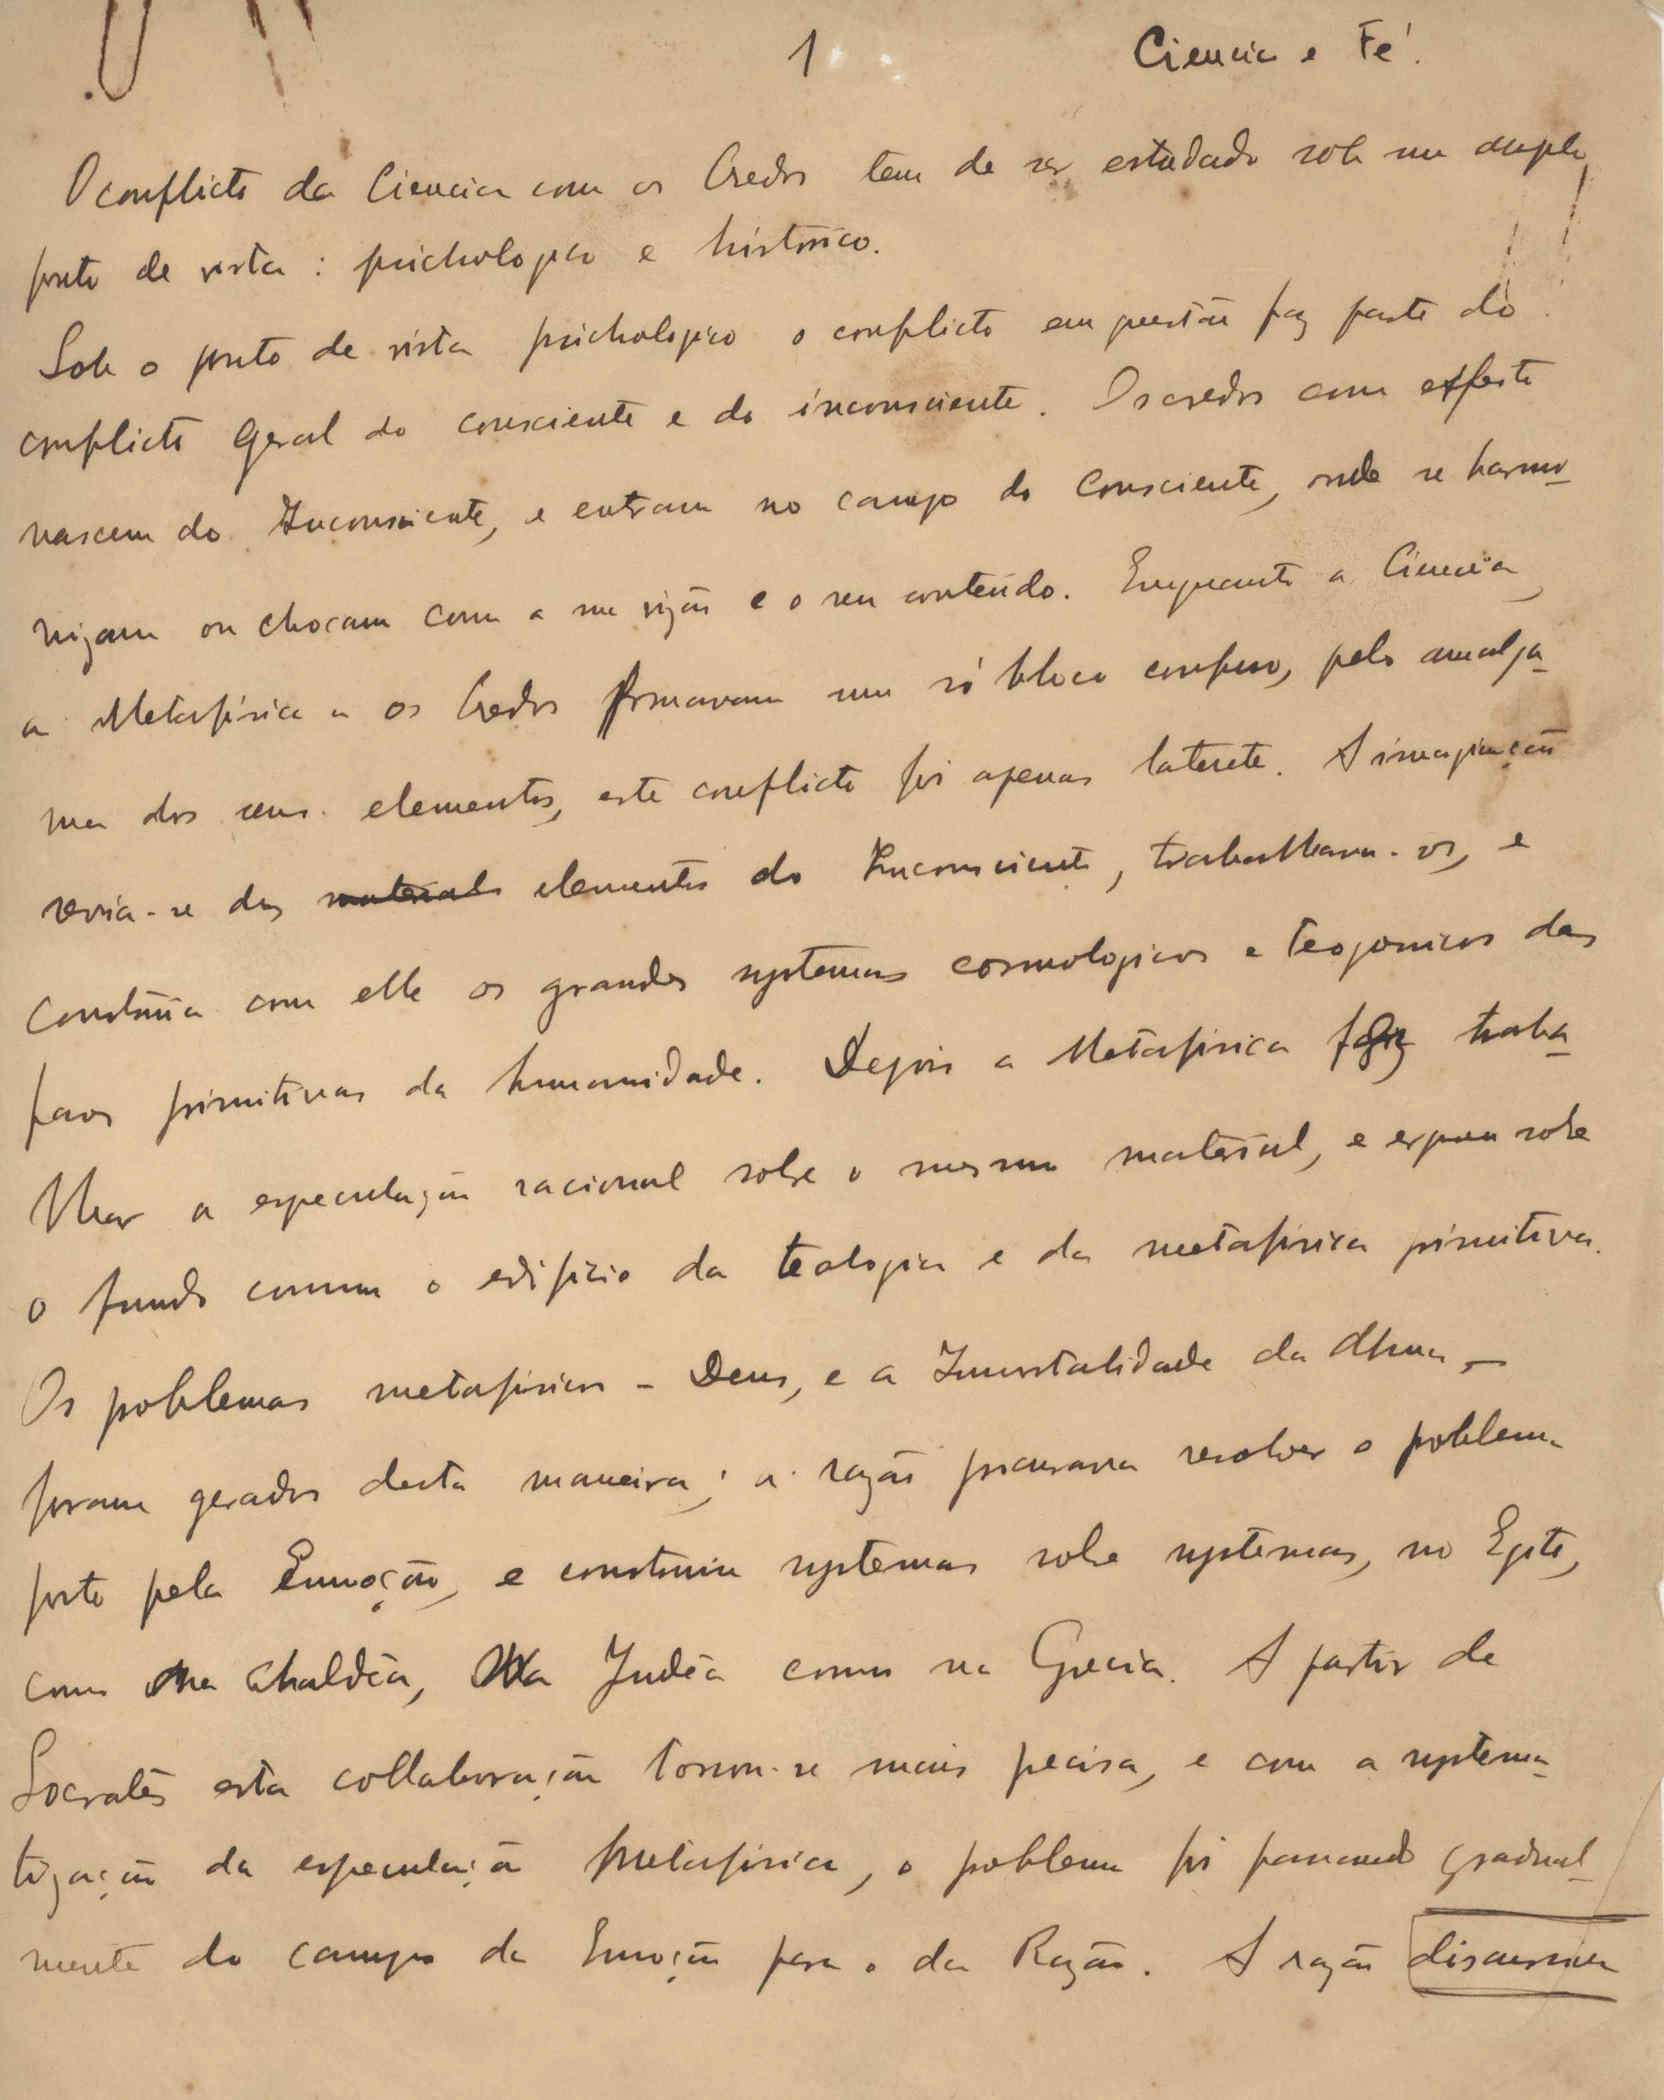 1 Ciencia e Fé.
O conflicto da Ciencia com os Credos tem de ser estudado sob um duplo
ponto de vista: psichologico e histórico.
Sob o ponto de vista psichologico o conflicto em questão faz parte do
conflicto geral do consciente e do inconsciente. Os credos com effeito
nascem do Inconsciente, e entram no campo do Consciente, onde se harmo-
nizam ou chocam com a sua visão e o seu conteúdo. Emquanto a Ciencia,
a Metafisica e os Credos formavam um só bloco confuso, pelo amalga-
ma dos seus elementos, este conflicto foi apenas latente. A imaginação
servia-se dos materiaes elementos do Inconsciente, trabalhava-os, e
construia com elle os grandes systemas cosmologicos e teogonicos das
fases primitivas da humanidade. Depois a Metafisica fez traba-
lhar a especulação racional sobre o mesmo material, e ergueu sobre
o fundo comum o edificio da teologia e da metafisica primitiva.
Os poblemas metafisicos - Deus, e a Imortalidade da Alma -
foram gerados desta maneira; a razão procurava resolver o poblema
posto pela Emoção, e construiu systemas sobre systemas, no Egito,
como na Chaldêa, na Judêa como na Grecia. A partir de
Socrates esta collaboração tornou-se mais pecisa, e com a systema-
tização da especulação metafisica, o poblema foi passando gradual-
mente do campo da Emoção para o da Razão. A razão discursiva